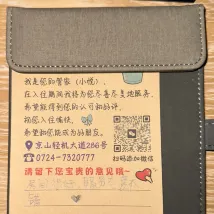 我是你的管家(小悦),
在入住期间我将为您尽善尽美地服务.
希望能得到您的认可和好评,
祝您入住愉快,
希望和您能成为好朋友。
京山轻机大道286号
0724-7320777
扫码添加微信
请留下您宝贵的意见哦~